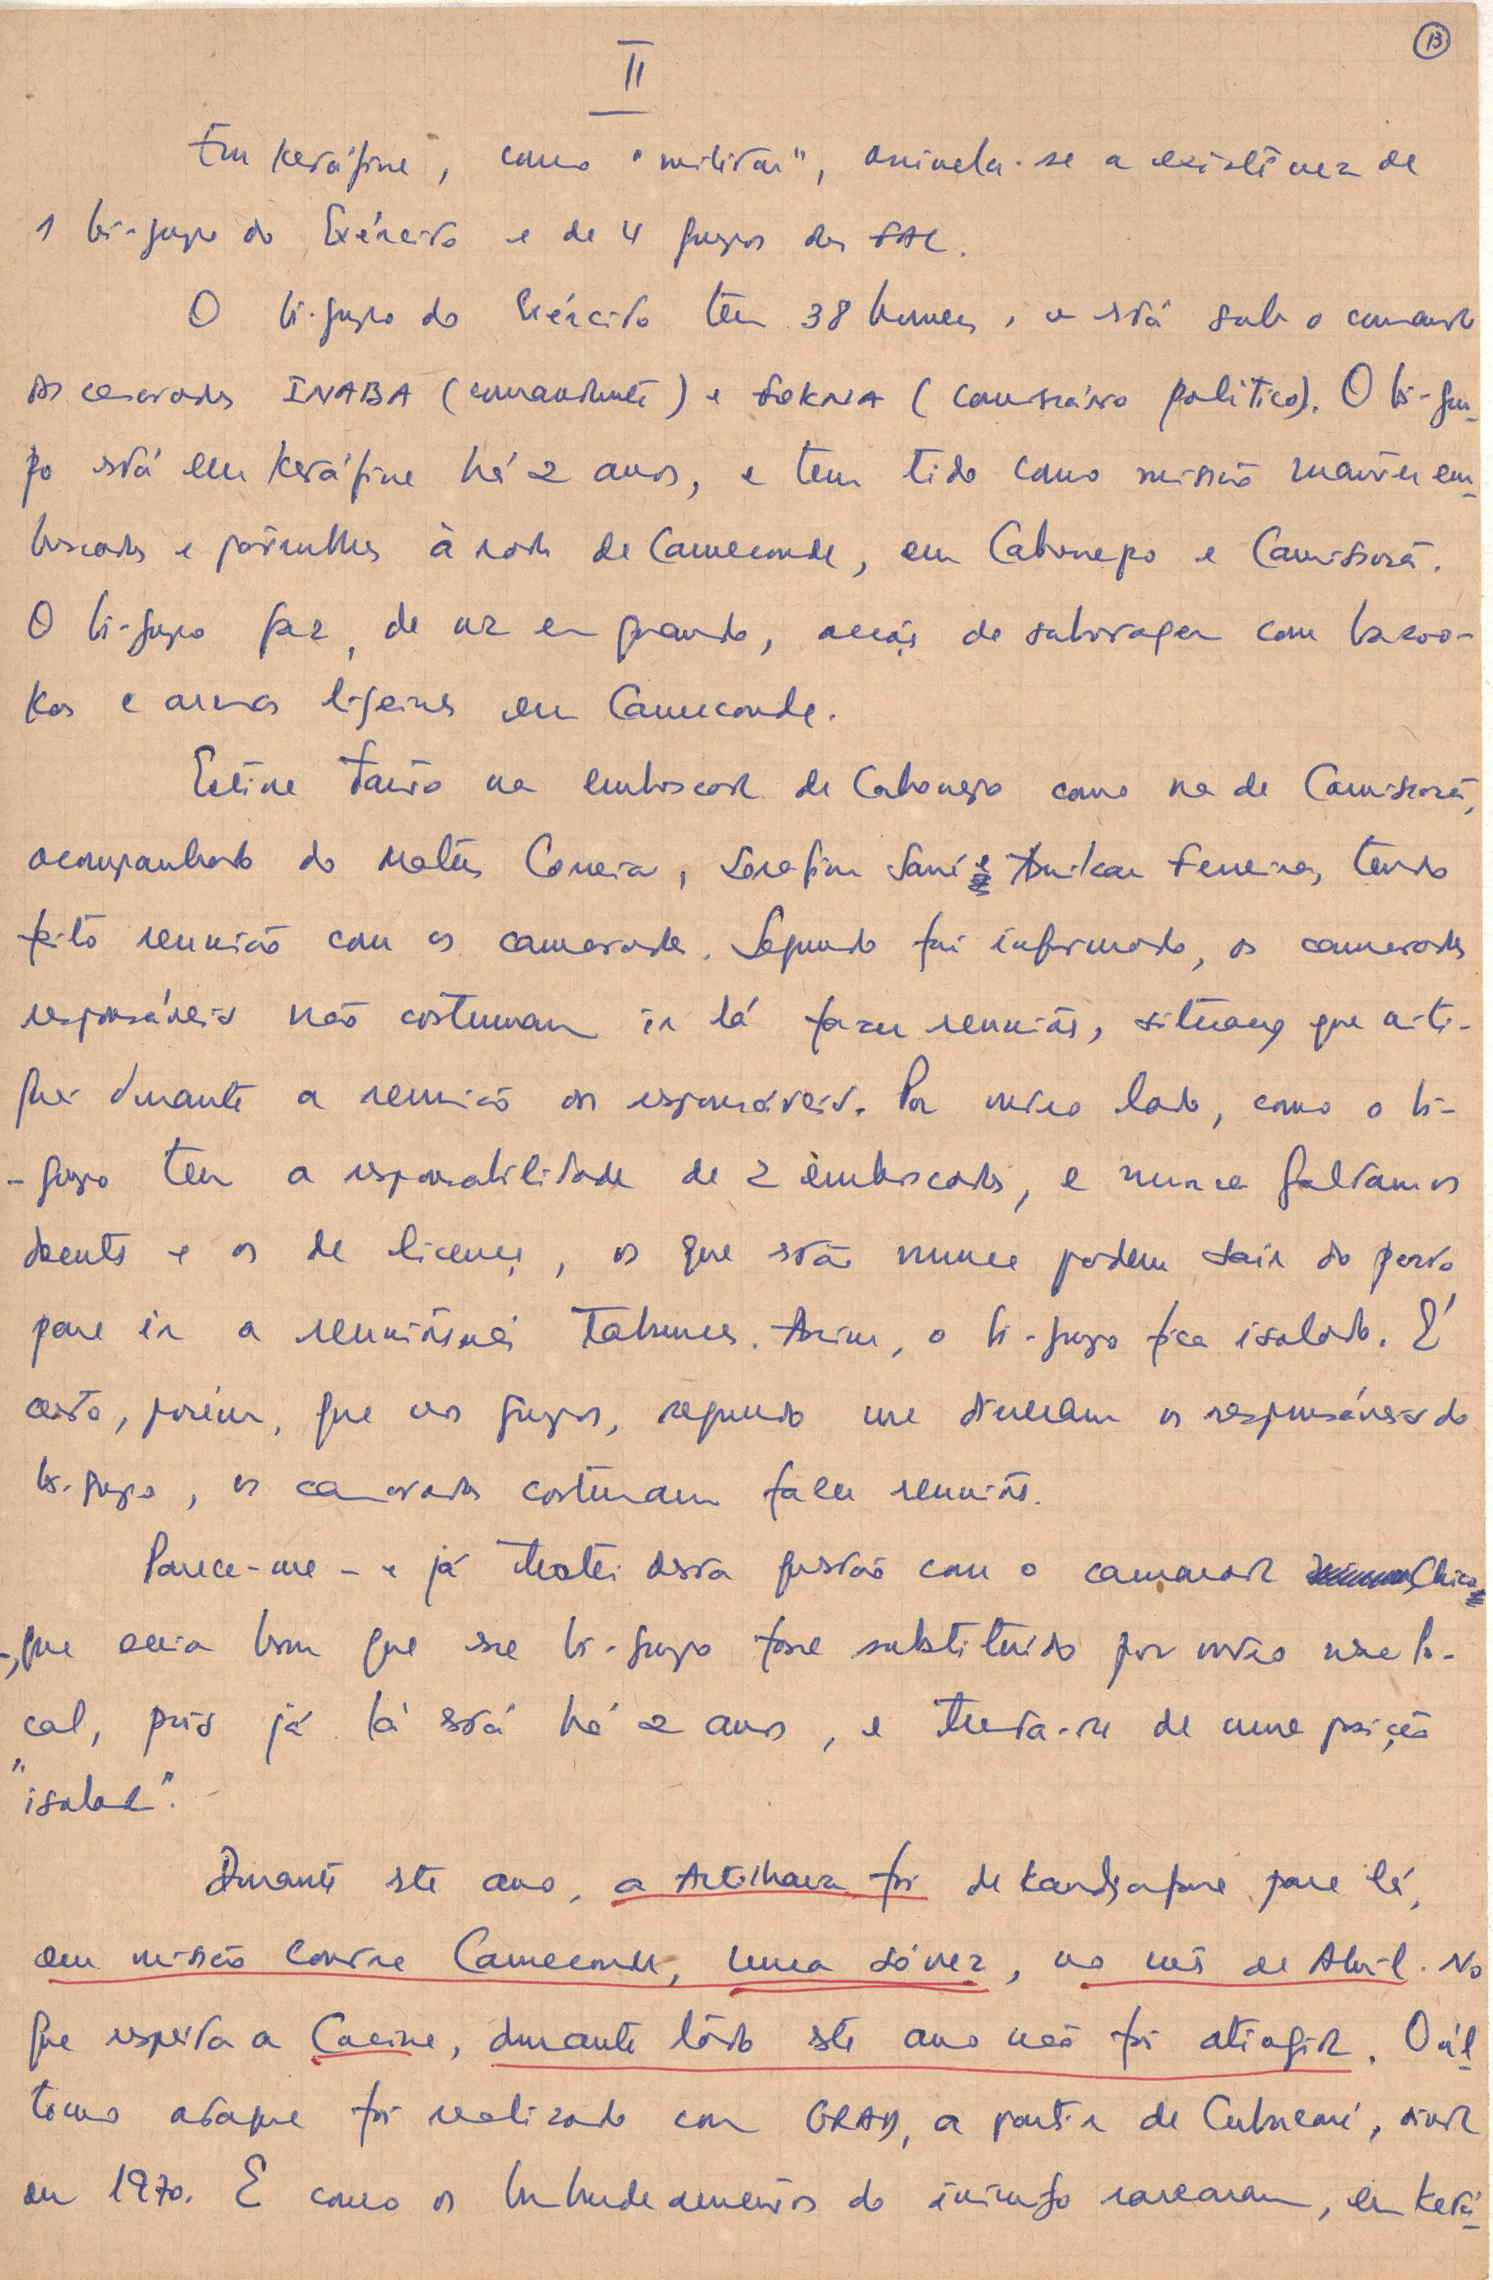 13
II
Em Ketáfine, como "militar", assinala-se a existência de
1 bi-grupo do Exército e de 4 grupos das FAL.
O bi-grupo do Exército tem 38 homens, e está sob o comando
dos camaradas INABA (comandante) e (comissário político). O bi-gru-
po está em Ketáfine há 2 anos, e tem tido como missão manter em-
boscadas e patrulhas à roda de Cameconde, em Cabonepo e Camissorã.
O bi-grupo faz, de vez em quando, acções de sabotagem com bazoo-
kas e armas ligeiras em Cameconde.
Estive tanto na emboscada de Cabonepo como na de Camissorã,
acompanhado do Matên Correia, Serafim Sani e Amilcar Ferreira, tendo
feito reunião com os camaradas. Segundo fui informado, os camaradas
responsáveis não costumam ir lá fazer reuniões, situação que casti-
guei durante a reunião os responsáveis. Por outro lado, como o bi-
-grupo tem a responsabilidade de 2 emboscadas, e nunca faltam os
doentes e os de licença, os que estão nunca podem sair do posto
para ir a reuniões nas Tabancas. Assim, o bi-grupo fica isolado. É
certo, porém, que nos grupos, segundo me disseram os responsáveis do
bi-grupo, os camaradas costumam fazer reuniões.
Parece-me - e já tratei desta questão com o camarada Chico
-, que seria bom que esse bi-grupo fosse substituído por outro nesse lo-
cal, pois já lá está há 2 anos, e trata-se de uma posição
"isolada".
Durante este ano, a Artilharia foi de Kandjafara para lá,
em missão contra Cameconde, uma só vez, no mês de Abril. No
que respeita a Cacine, durante tôdo este ano não foi atingida. O úl-
timo ataque foi realizado com GRAD, a partir de Cubucaré, ainda
em 1970. E como os bombardeamentos do inimigo rarearam, em Ketá-